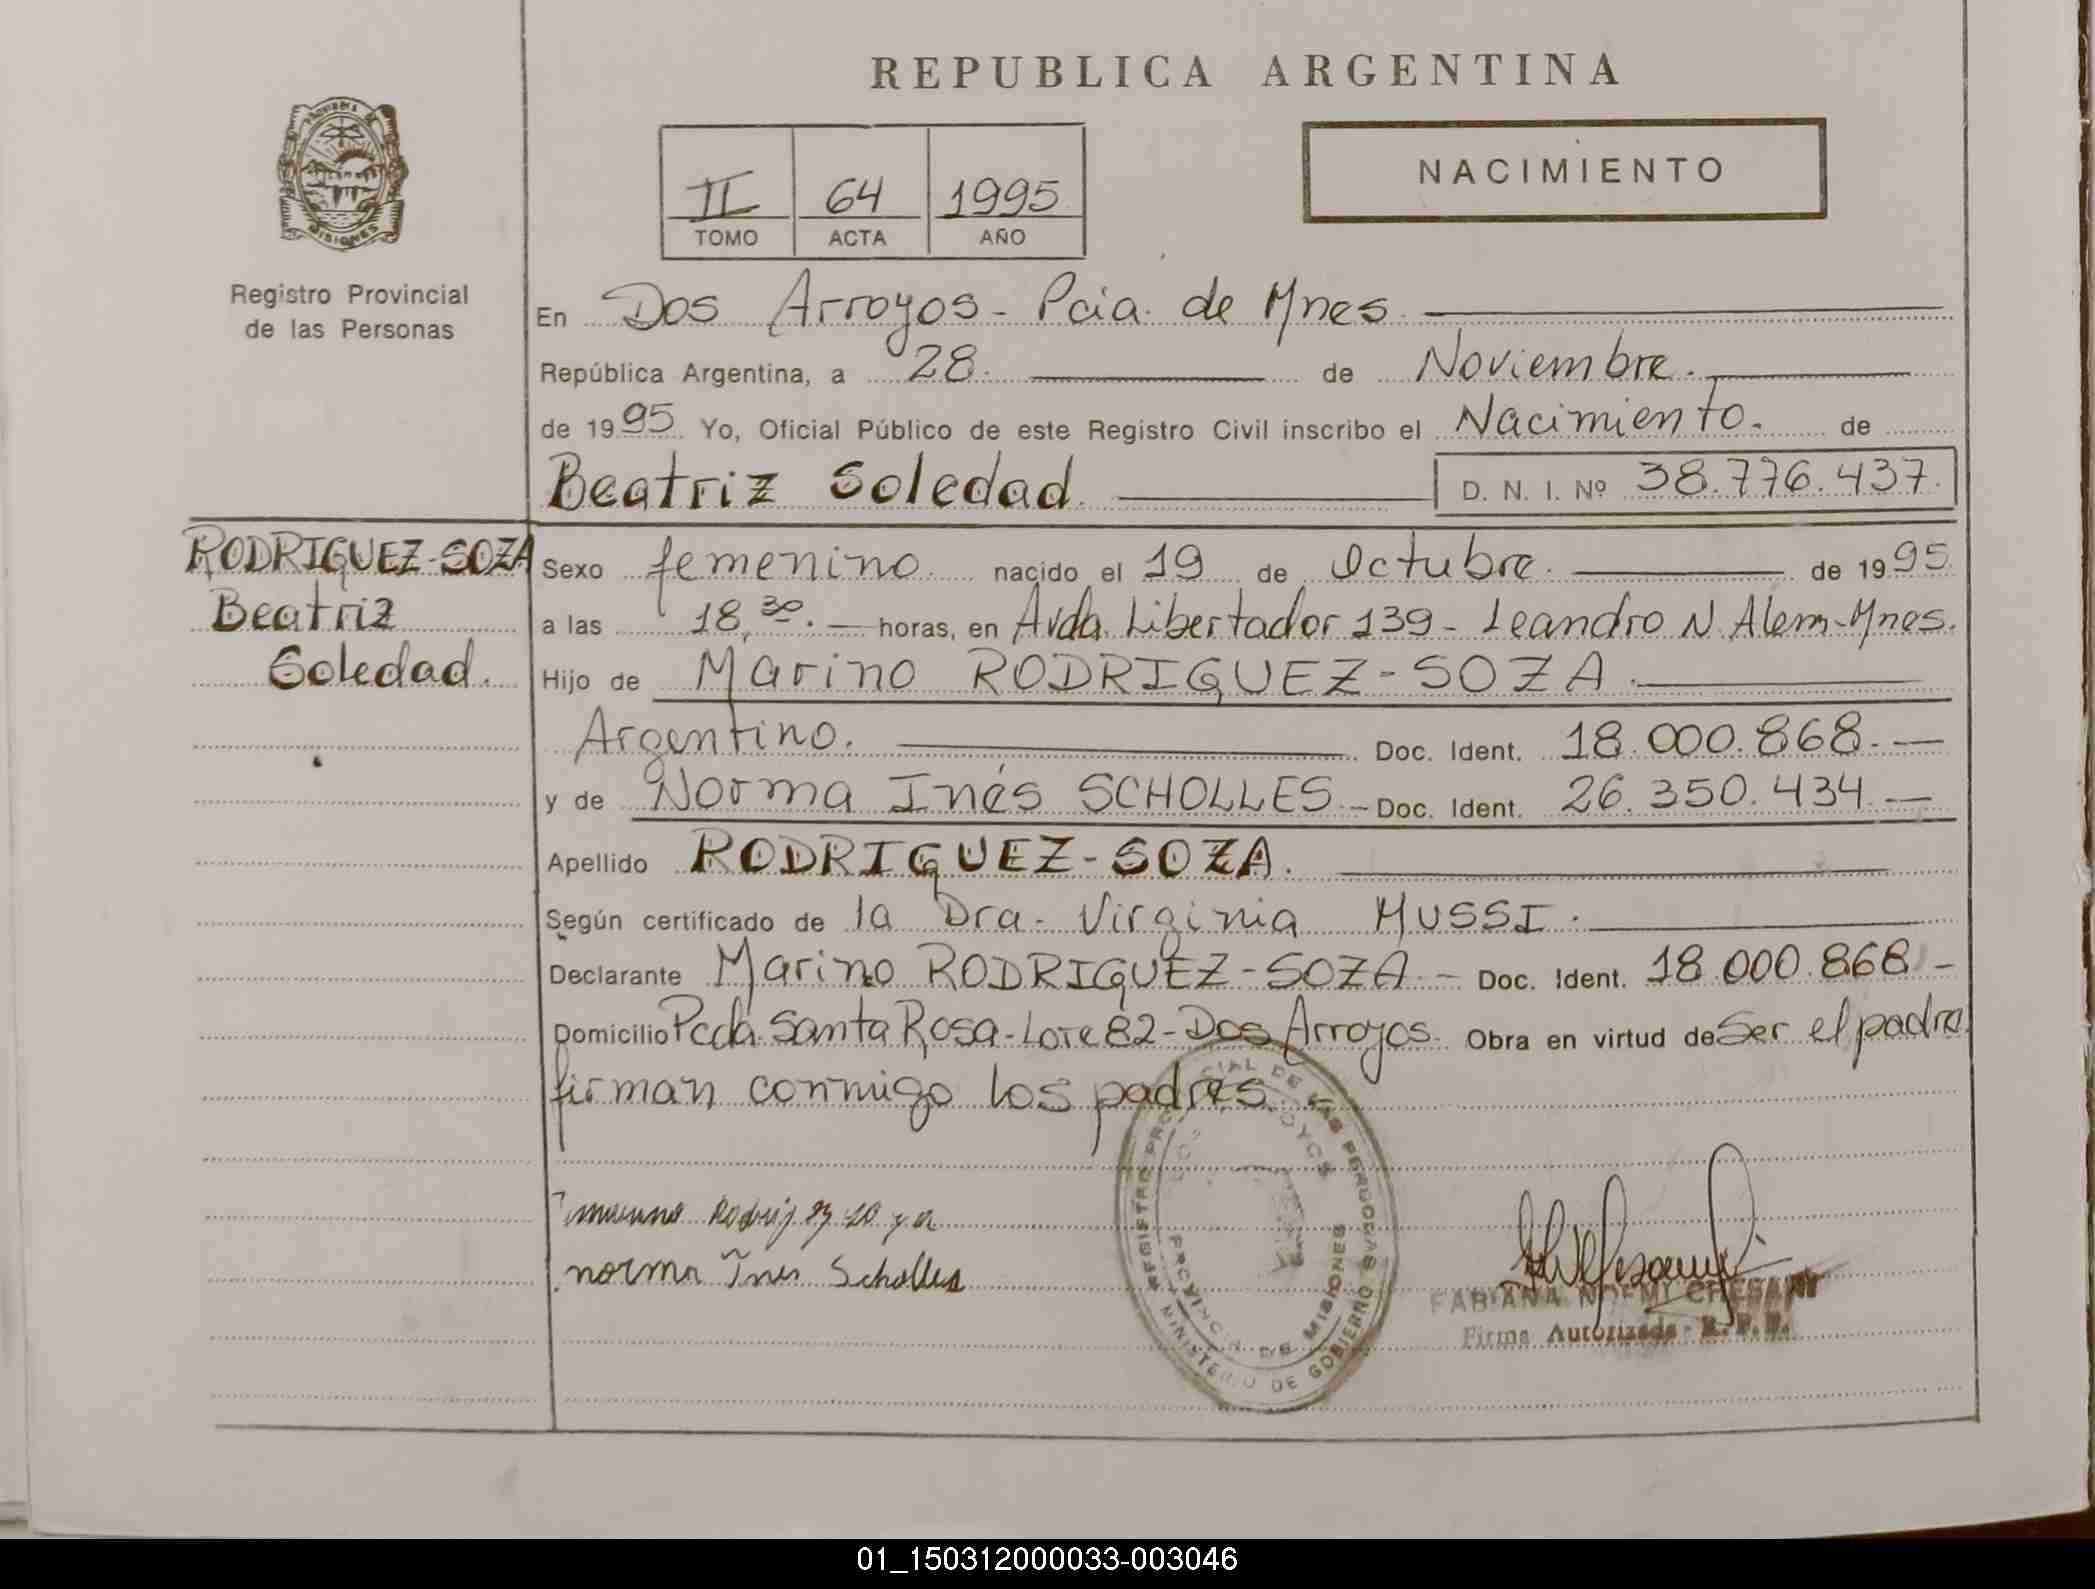 REPUBLICA ARGENTINA
PROVINCIA DE MISIONES
Registro Provincial
de las Personas
II 64 1995
TOMO ACTA AÑO
NACIMIENTO
En Dos Arroyos - Pcia. de Mnes.
República Argentina, a 28. de Noviembre.
de 1995 Yo, Oficial Público de este Registro Civil inscribo el Nacimiento. de
Beatriz Soledad. D. N. I. Nº 38.776.437.
RODRIGUEZ-SOZA
Beatriz
Soledad.
Sexo femenino. nacido el 19 de Octubre. de 1995
a las 18,30. — horas, en Avda. Libertador 139 - Leandro N. Alem - Mnes.
Hijo de Marino RODRIGUEZ-SOZA.
Argentino. Doc. Ident. 18.000.868. —
y de Norma Inés SCHOLLES. — Doc. Ident. 26.350.434. —
Apellido RODRIGUEZ-SOZA.
Según certificado de la Dra. Virginia MUSSI.
Declarante Marino RODRIGUEZ-SOZA. — Doc. Ident. 18.000.868 -
Domicilio Pcda. Santa Rosa - Lote 82 - Dos Arroyos. Obra en virtud de Ser el padre.
firman conmigo los padres.
norma Ines Scholles
REGISTRO PROVINCIAL DE LAS PERSONAS
DOS ARROYOS
PROVINCIA DE MISIONES
MINISTERIO DE GOBIERNO
FABIANA NOEMI CHESANI
Firma Autorizada - R. P. P.
01_150312000033-003046